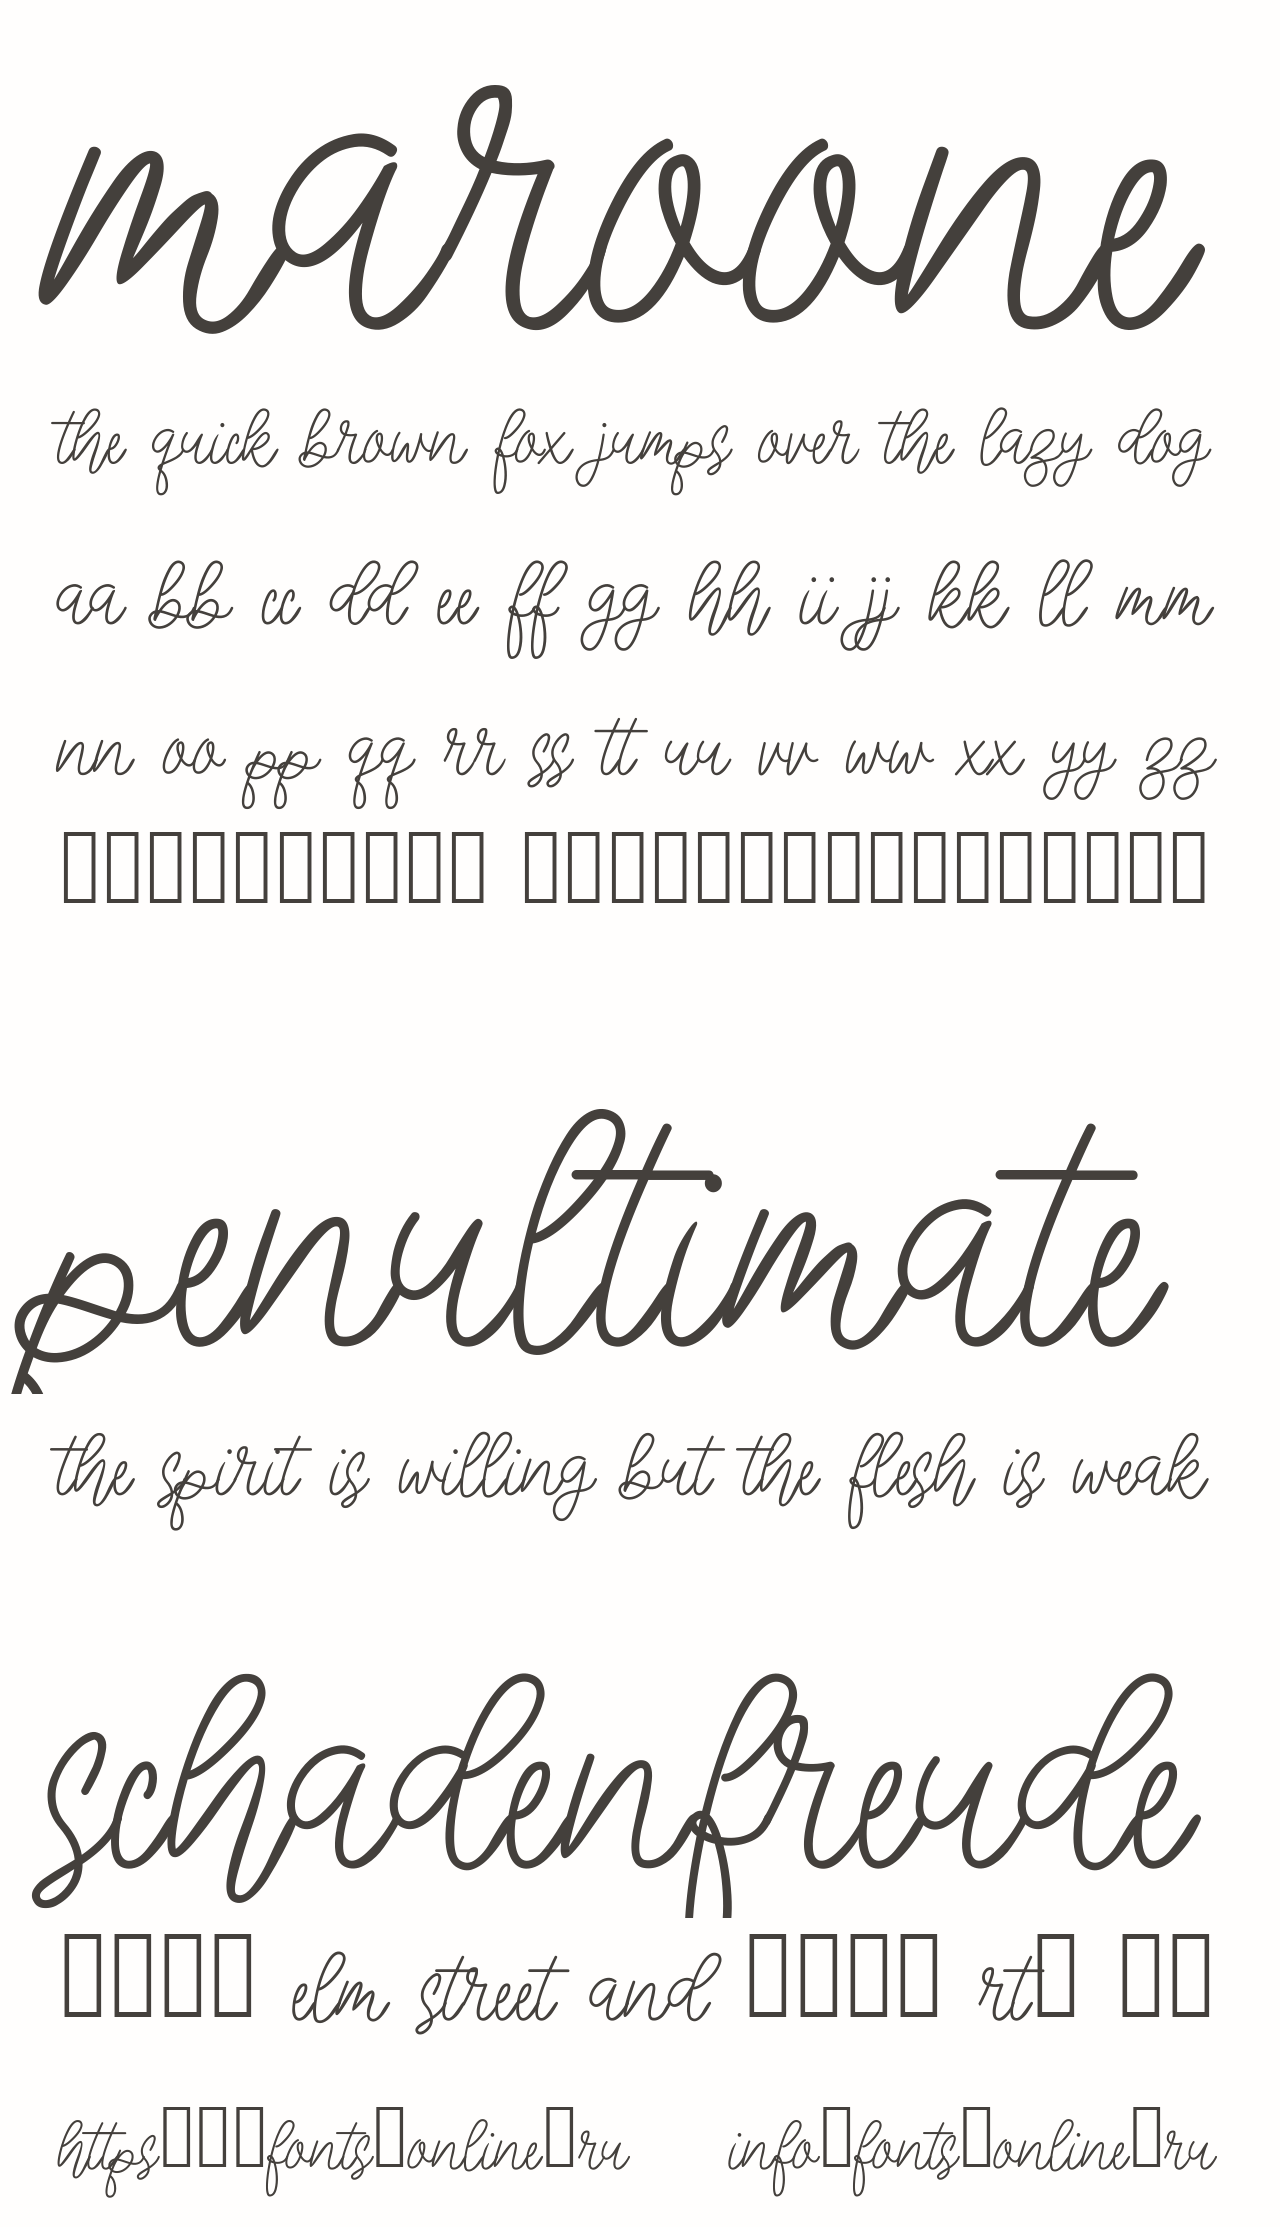 maroone
the quick brown fox jumps over the lazy dog
aa bb cc dd ee ff gg hh ii jj kk ll mm
nn oo pp qq rr ss tt uu vv ww xx yy zz
▯▯▯▯▯▯▯▯▯▯ ▯▯▯▯▯▯▯▯▯▯▯▯▯▯▯▯
penultimate
the spirit is willing but the flesh is weak
schadenfreude
▯▯▯▯ elm street and ▯▯▯▯ rt▯ ▯▯
https▯▯▯fonts▯online▯ru info▯fonts▯online▯ru